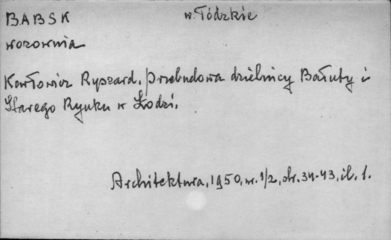 BABSK w. łódzkie
wozownia
Karłowicz Ryszard. Przebudowa dzielnicy Bałuty i
Starego Rynku w Łodzi.
Architektura, 1950, nr. 1/2, str. 34-43, il. 1.